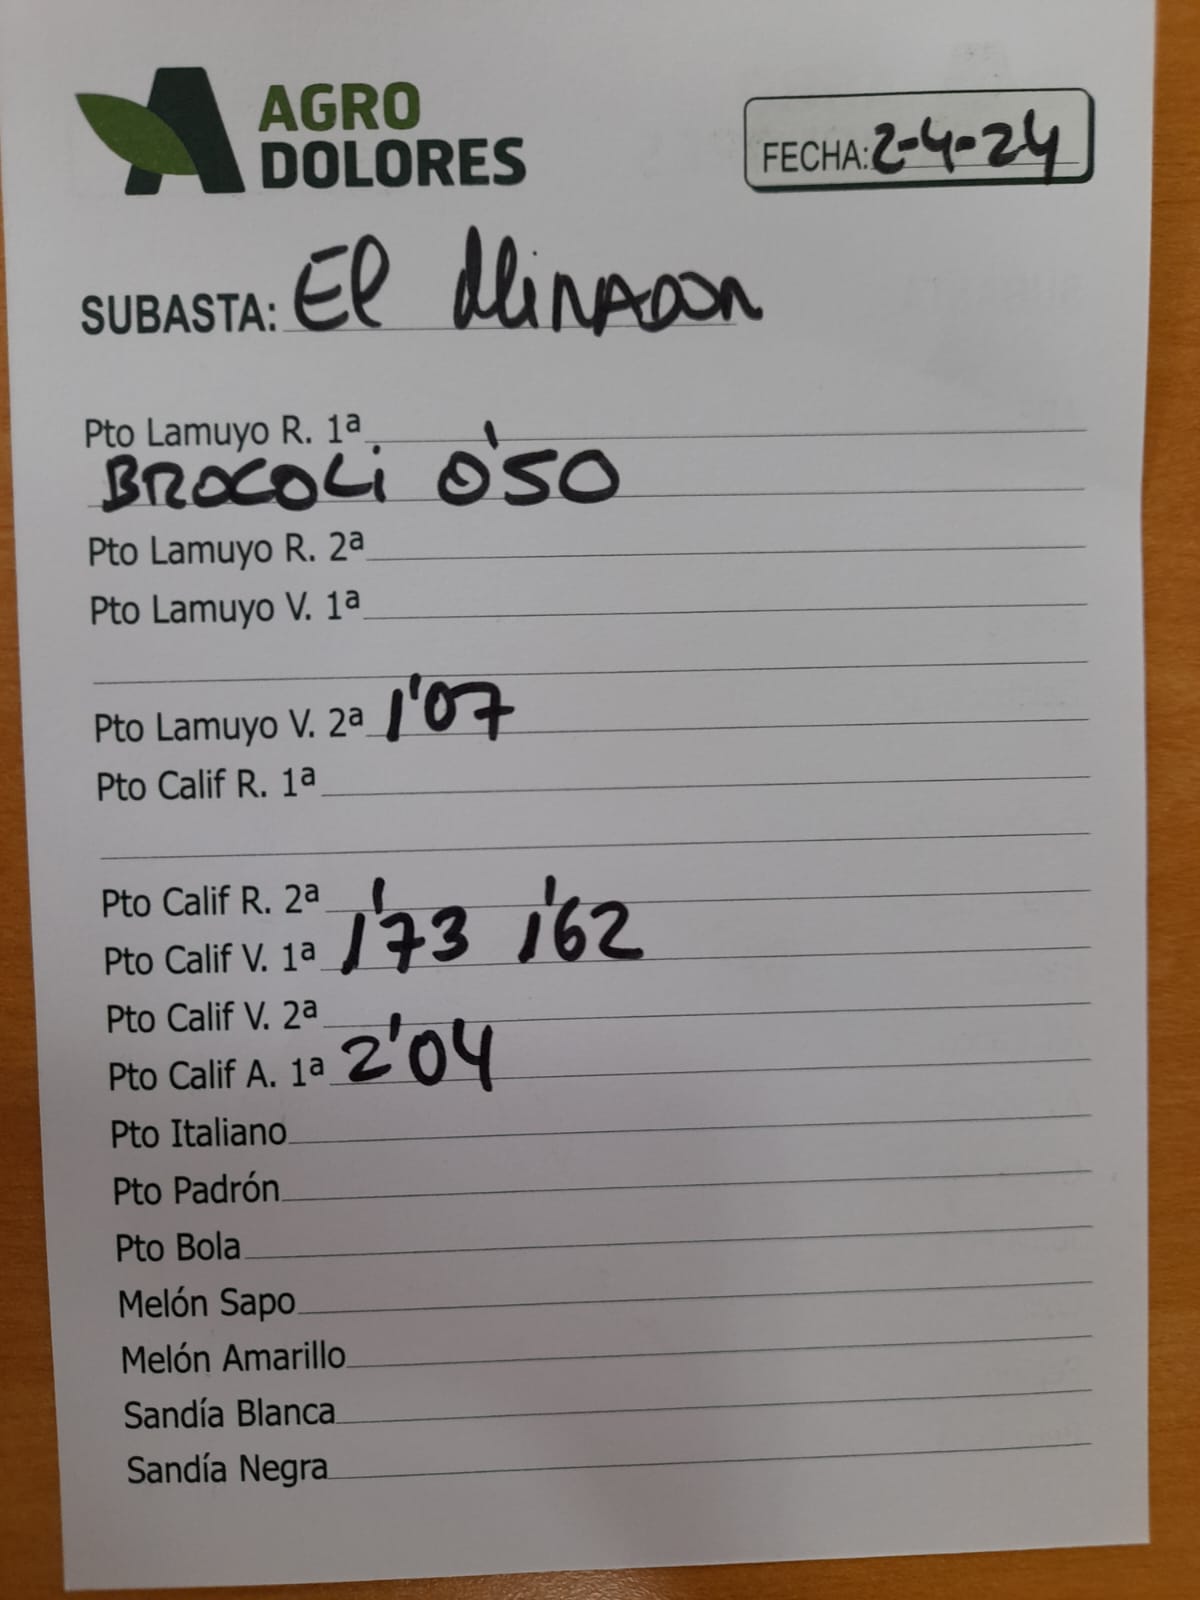 AGRO
DOLORES
FECHA: 2-4-24
SUBASTA: El MiRADOR
Pto Lamuyo R. 1ª
BROCOLi 0'50
Pto Lamuyo R. 2ª
Pto Lamuyo V. 1ª
Pto Lamuyo V. 2ª 1'07
Pto Calif R. 1ª
Pto Calif R. 2ª
Pto Calif V. 1ª 1'73 1'62
Pto Calif V. 2ª
Pto Calif A. 1ª 2'04
Pto Italiano
Pto Padrón
Pto Bola
Melón Sapo
Melón Amarillo
Sandía Blanca
Sandía Negra